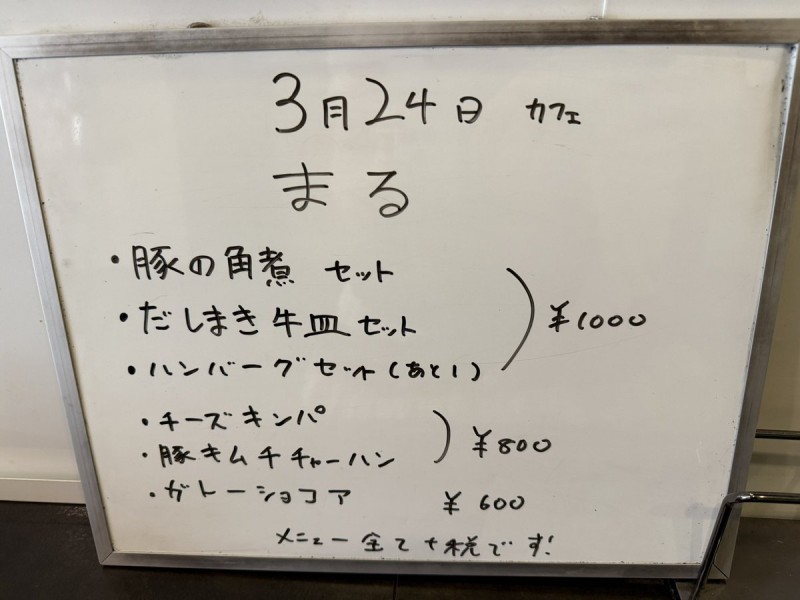 3月24日 カフェ
まる
・豚の角煮 セット
・だしまき牛皿セット
・ハンバーグセット(あと1)
¥1000
・チーズキンパ
・豚キムチチャーハン
¥800
・ガトーショコア ¥600
メニュー全て+税です!